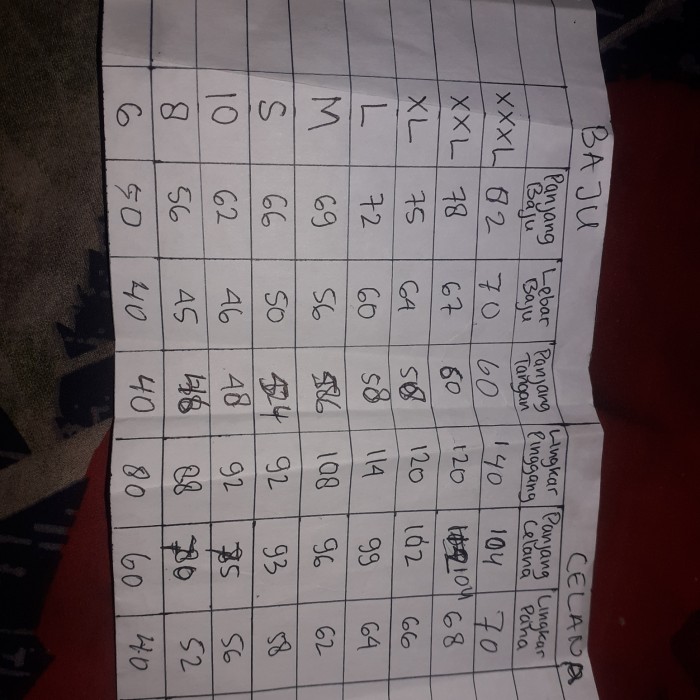 BAJU CELANA
Panjang Baju Lebar Baju Panjang Tangan Lingkar Pinggang Panjang Celana Lingkar Paha
XXXL 82 70 60 140 104 70
XXL 78 67 60 120 104 68
XL 75 64 58 120 102 66
L 72 60 58 114 99 64
M 69 56 56 108 96 62
S 66 50 54 92 93 58
10 62 46 48 92 75 56
8 56 45 88 52
6 50 40 40 80 60 40